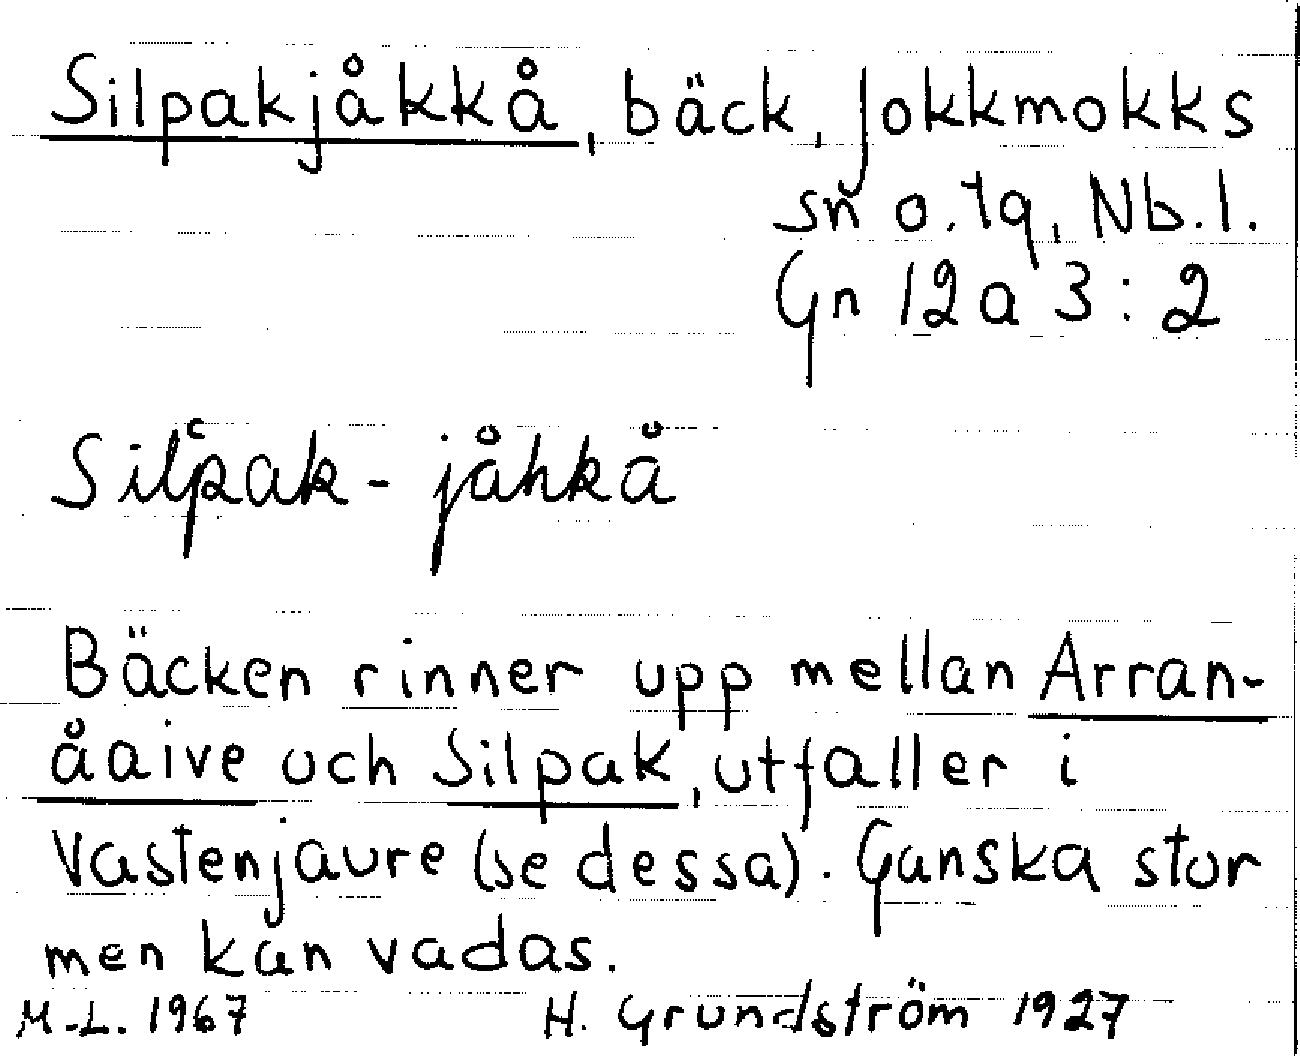 Silpakjåkkå, bäck, Jokkmokks
sn o. tq, Nb. l.
Gn 12 a 3 : 2
Silp̔ak - jåhkå̆
Bäcken rinner upp mellan Arran-
åaive och Silpak, utfaller i
Vastenjaure (se dessa). Ganska stor
men kan vadas.
M.-L. 1967 H. Grundström 1927